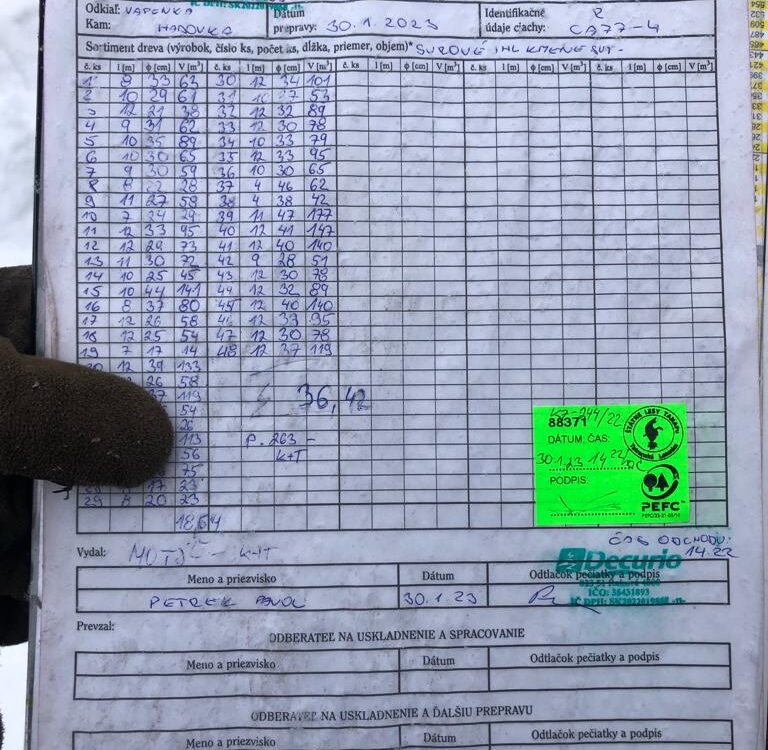 Odkiaľ: VAPENKA
IČ DPH: SK2022019868
Dátum prepravy: 30.1.2023
Identifikačné údaje ciachy: CA77-4
Kam: HADOVKA
Sortiment dreva (výrobok, číslo ks, počet ks, dĺžka, priemer, objem)* SUROVE IHL KMENE
č. ks l [m] ϕ [cm] V [m³] č. ks l [m] ϕ [cm] V [m³] č. ks l [m] ϕ [cm] V [m³] č. ks l [m] ϕ [cm] V [m³] č. ks l [m] ϕ [cm] V [m³]
1 8 33 63 30 12 34 101
2 10 29 61 31 27 53
3 12 21 38 32 12 32 89
4 9 31 62 33 12 30 78
5 10 35 89 34 10 33 79
6 10 30 65 35 12 33 95
7 9 30 59 36 10 30 65
8 8 22 28 37 4 46 62
9 11 27 58 38 4 38 42
10 7 24 29 39 11 47 177
11 12 33 95 40 12 41 147
12 12 29 73 41 12 40 140
13 11 30 72 42 9 28 51
14 10 25 45 43 12 30 78
15 10 44 141 44 12 32 89
16 8 37 80 45 12 40 140
17 12 26 58 46 12 33 95
18 12 25 54 47 12 30 78
19 7 17 14 48 12 37 119
20 12 39 133
26 58
37 119
54
26
113
56
75
17 23
29 8 20 23
36,42
P. 263 -
K+T
18,64
88371
DÁTUM, ČAS:
30.1.23 14 22
PODPIS:
ŠTÁTNE LESY TANAPu
PEFC
ČAS ODCHODU:
14.22
Vydal: K+T
Decurio
Meno a priezvisko Dátum Odtlačok pečiatky a podpis
IČO: 36431893
PETREK PAVOL 30.1.23
IČ DPH: SK2022019868
Prevzal:
ODBERATEĽ NA USKLADNENIE A SPRACOVANIE
Meno a priezvisko Dátum Odtlačok pečiatky a podpis
ODBERATEĽ NA USKLADNENIE A ĎALŠIU PREPRAVU
Meno a priezvisko Dátum Odtlačok pečiatky a podpis